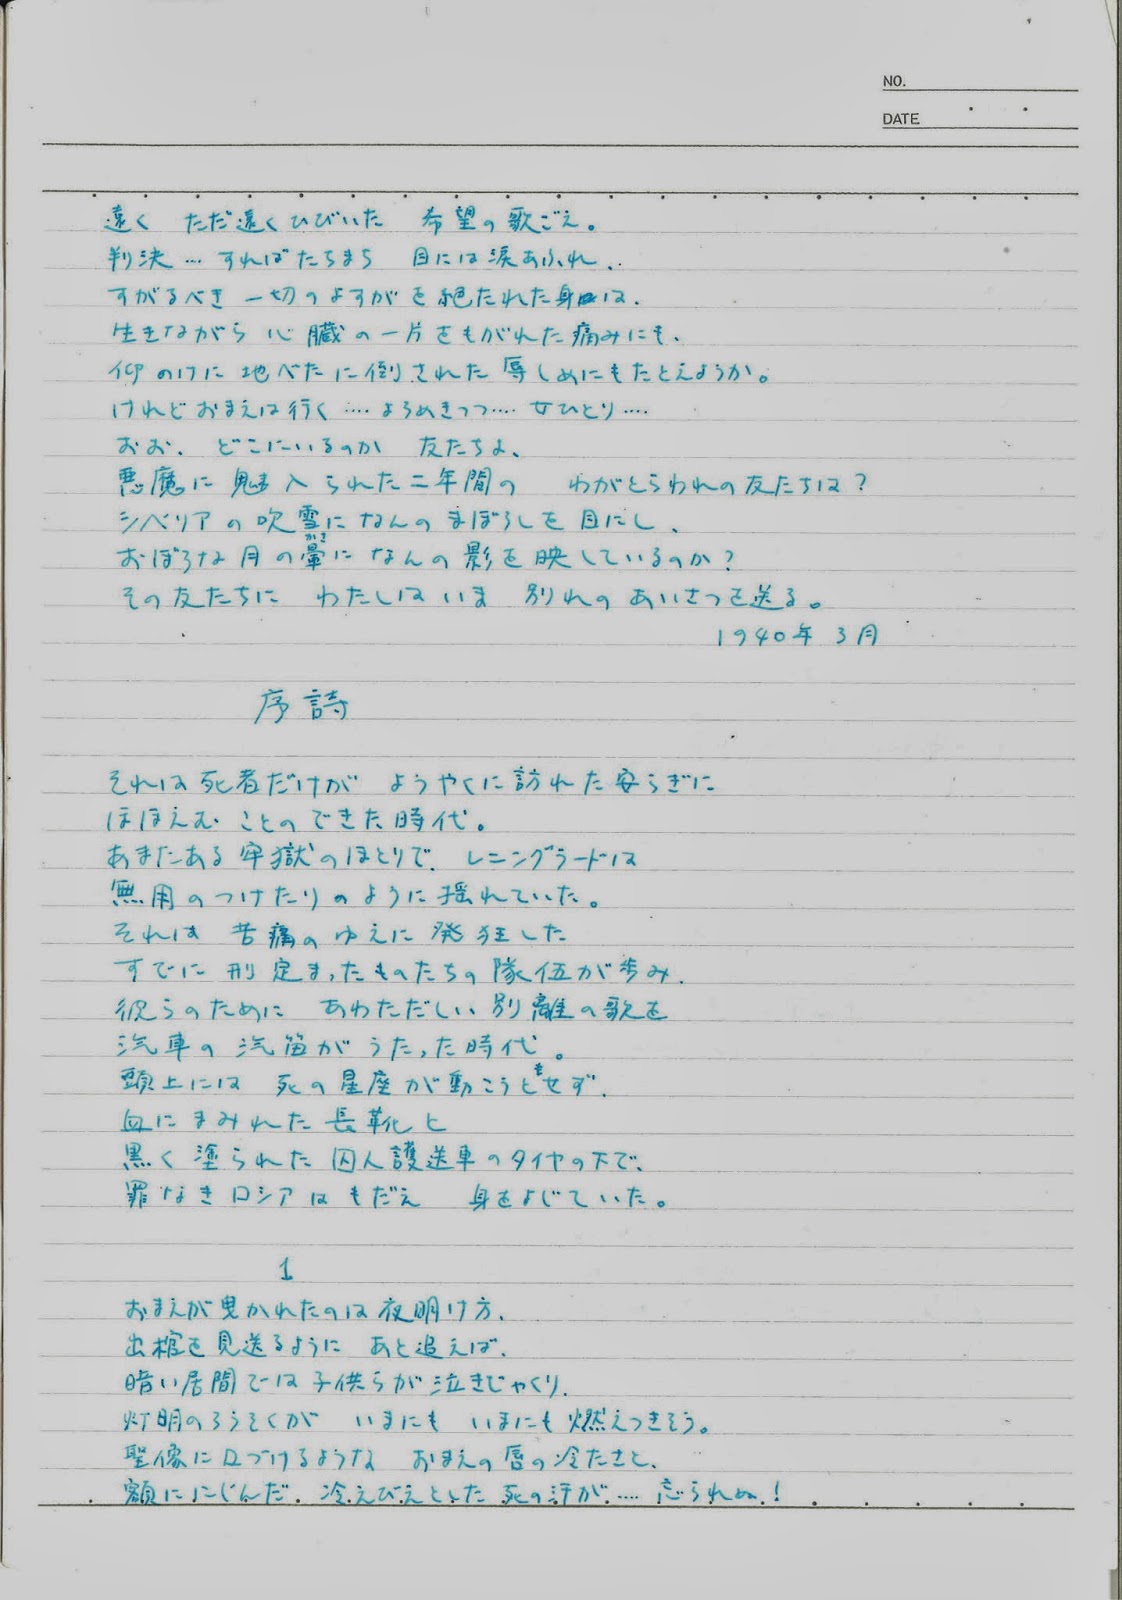 NO.
DATE
遠く　ただ遠くひびいた　希望の歌ごえ。
判決…すればたちまち　目には涙あふれ、
すがるべき一切のよすがを絶たれた身は、
生きながら心臓の一片をもがれた痛みにも、
仰のけに地べたに倒された辱しめにもたとえようか。
けれどおまえは行く‥‥よろめきつつ‥‥女ひとり‥‥
おお、どこにいるのか　友たちよ、
悪魔に魅入られた二年間の　わがとらわれの友たちは？
シベリアの吹雪になんのまぼろしを目にし、
おぼろな月の暈になんの影を映しているのか？
かさ
その友たちに　わたしはいま　別れのあいさつを送る。
1940年3月
序詩
それは死者だけが　ようやくに訪れた安らぎに
ほほえむことのできた時代。
あまたある牢獄のほとりで、レニングラードは
無用のつけたりのように揺れていた。
それは　苦痛のゆえに発狂した
すでに刑定まったものたちの隊伍が歩み、
彼らのために　あわただしい別離の歌を
汽車の汽笛がうたった時代。
頭上には　死の星座が動こうともせず、
血にまみれた長靴と
黒く塗られた囚人護送車のタイヤの下で、
罪なきロシアはもだえ　身をよじていた。
1
おまえが曳かれたのは夜明け方、
出棺を見送るように　あと追えば、
暗い居間では子供らが泣きじゃくり、
灯明のろうそくが　いまにも　いまにも燃えつきそう。
聖像に口づけるような　おまえの唇の冷たさと、
額ににじんだ、冷えびえとした死の汗が‥‥忘られぬ！